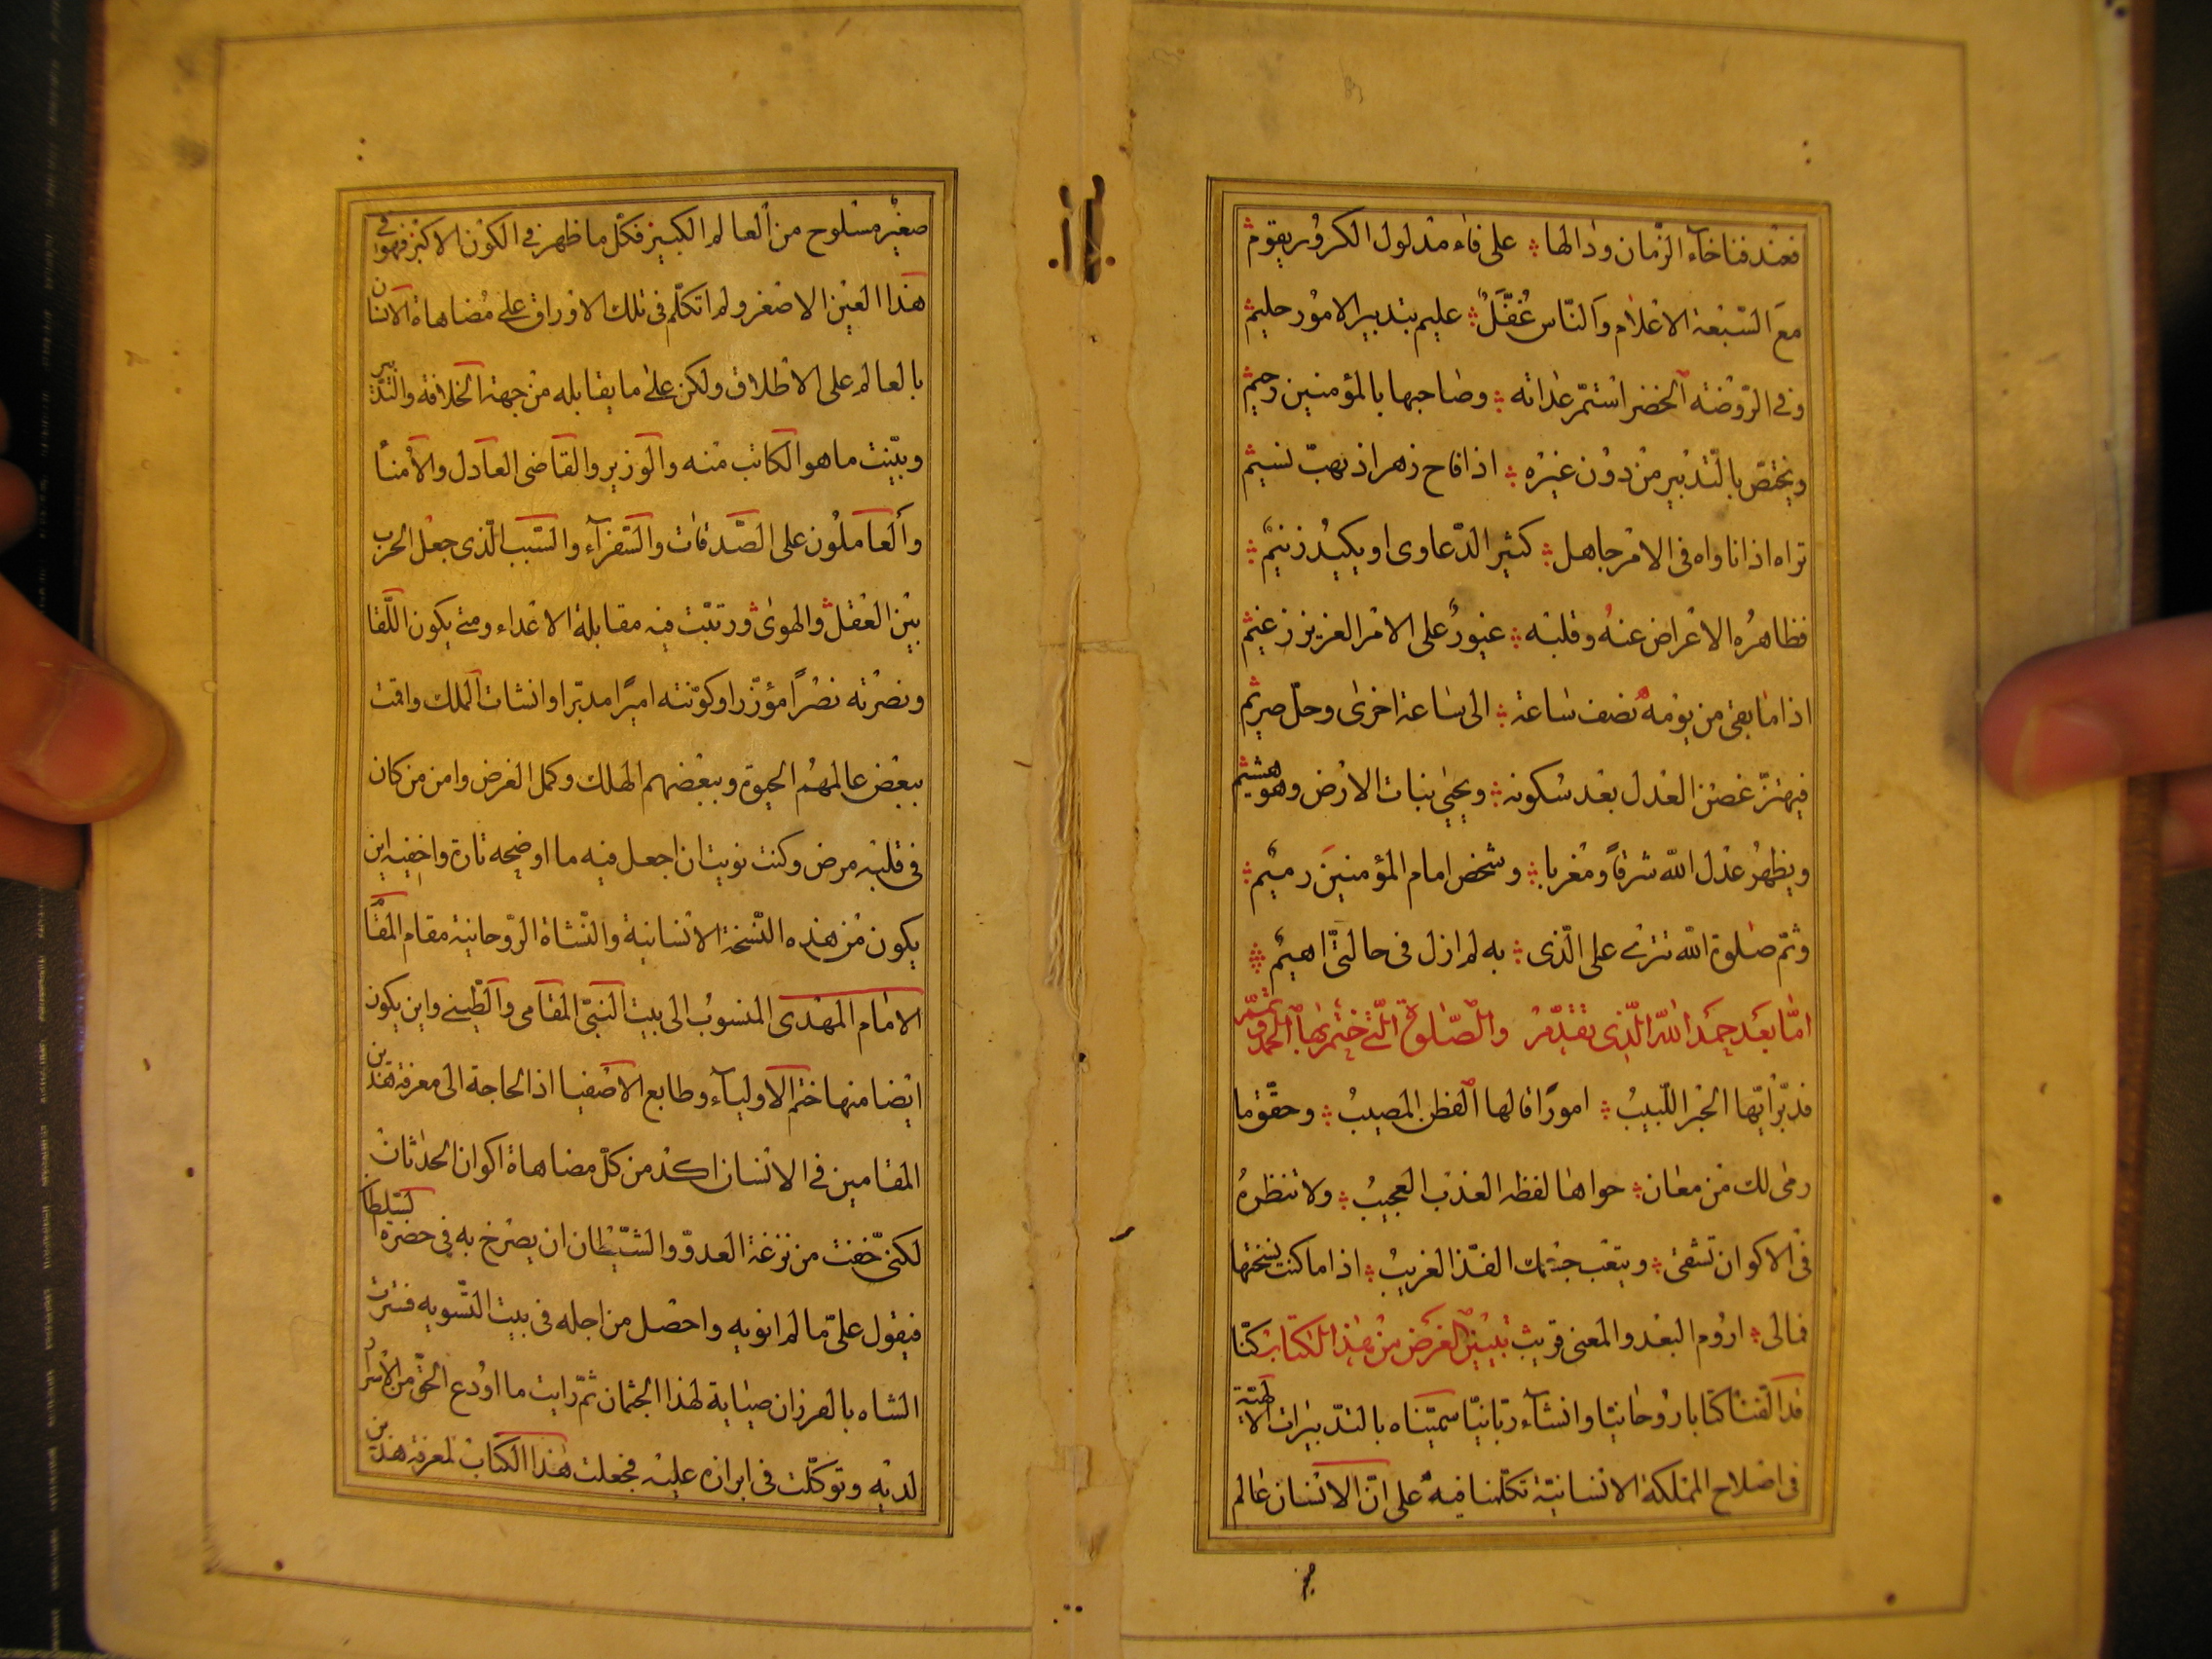 فعند فنا خآء الزمان ودالها ؞ على فاء مدلول الكرور يقوم
مع السبعة الاعلام والناس غفل ؞ عليم بتدبير الامور حليم
وفى الروضة الخضرا ستمر عداته ؞ وصاحبها بالمؤمنين رحيم
ويختص بالتدبير من دون غيره ؞ اذا فاح زهر اذ تهب نسيم
تراه اذا ناواه فى الامر جاهل ؞ كثير الدعاوى او يكيد زنيم
فظاهره الاعراض عنه وقلبه ؞ غيور على الامر العزيز زعيم
اذا ما بقى من يومه نصف ساعة ؞ الى ساعة اخرى وحل صريم
فيهتز غصن العدل بعد سكونه ؞ ويحيى نبات الارض وهو هشيم
ويظهر عدل الله شرقا ومغربا ؞ وشخص امام المؤمنين رميم
وثم صلوة الله تترى على الذى ؞ به لم ازل فى حالتى اهيم
اما بعد حمد الله الذى تقدم والصلوة التى ختم بها الحمد وتمم
فدبر ايها الحبر اللبيب ؞ امورا قالها الفطن المصيب ؞ وحقق ما
رمى لك من معان ؞ حواها لفظه العذب العجيب ؞ ولا تنظره
فى الاكوان تشقى ؞ ويتعب جسمك الفذ الغريب ؞ اذا ما كنت نسختها
فمالى ؞ اروم البعد والمعنى قريب تبيين الغرض من هذا الكتاب كنا
قد الفنا كتابا روحانيا وانشآء ربانيا سميناه بالتدبيرات الالهية
فى اصلاح المملكة الانسانية تكلمنا فيه على ان الانسان عالم
صغير مسلوخ من العالم الكبير فكل ما ظهر فى الكون الاكبر فهو فى
هذا العين الاصغر ولم اتكلم فى تلك الاوراق على مضاهاة الانسان
بالعالم على الاطلاق ولكن على ما يقابله من جهة الخلافة والتدبير
وبينت ما هو الكاتب منه والوزير والقاضى العادل والامنا
والعاملون على الصدقات والسفرآء والسبب الذى جعل الحرب
بين العقل والهوى ورتبت فيه مقابلة الاعداء ومتى يكون اللقا
ونصرته نصرا مؤزرا وكونته اميرا مدبرا وانشات الملك واقمت
ببعض عالمهم الحيوة وببعضهم الهلك وكمل الغرض وامن من كان
فى قلبه مرض وكنت نويت ان اجعل فيه ما اوضحه تارة واخفيه اين
يكون من هذه النسخة الانسانية والنشاة الروحانية مقام المقا
الامام المهدى المنسوب الى بيت النبى المقامى والطينى واين يكون
ايضا منها ختم الاوليآء وطابع الاصفيا اذ الحاجة الى معرفة هذين
المقامين فى الانسان اكد من كل مضاهاة اكوان الحدثان
لكنى خفت من نزغة العدو والشيطان ان يصرخ به فى حضرة السلطان
فيقول على ما لم انويه واحصل من اجله فى بيت التسويه فسترت
الشاه بالفرزان صيانة لهذا الجثمان ثم رايت ما اودع الحق من الاسرار
لديه وتوكلت فى ابرازه عليه فجعلت هذا الكتاب لمعرفة هذين